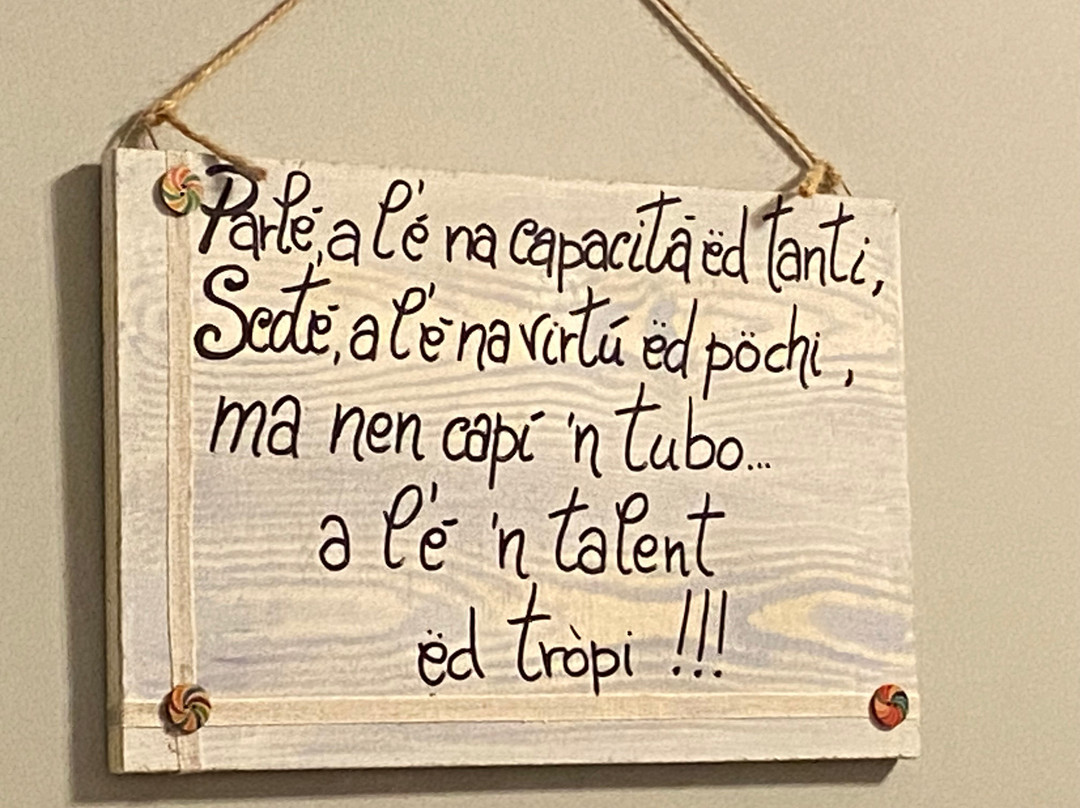 Parlé, a l'é na capacitā ëd tanti,
Scoté, a l'é na virtú ëd pöchi,
ma nen capí 'n tubo...
a l'é 'n talent
ëd tròpi !!!